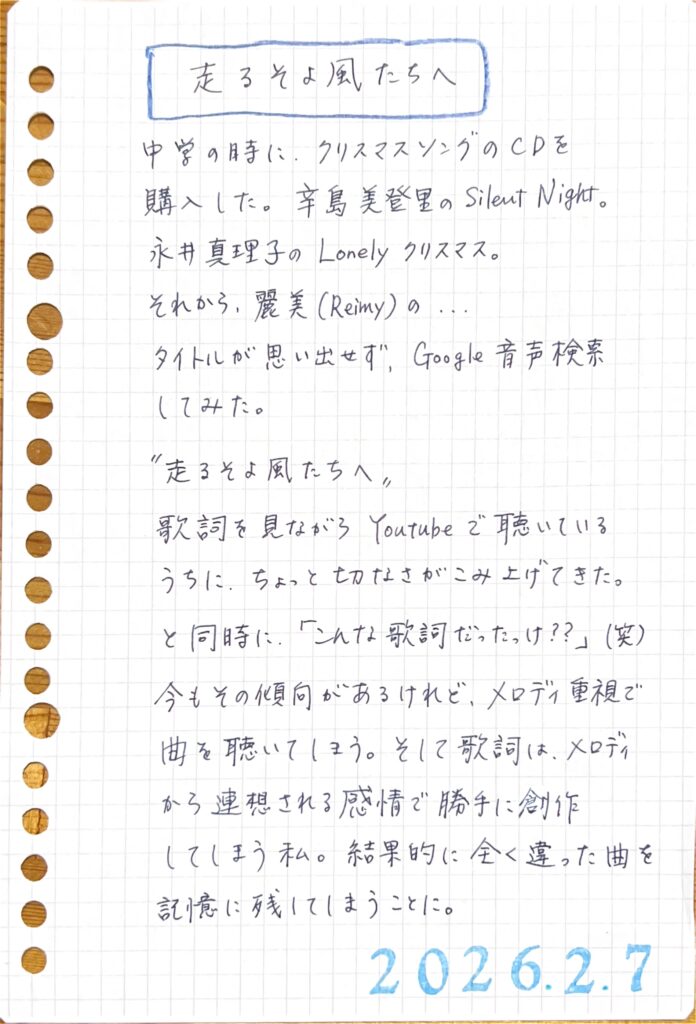 走るそよ風たちへ
中学の時に、クリスマスソングのCDを
購入した。辛島美登里のSilent Night。
永井真理子のLonelyクリスマス。
それから、麗美(Reimy)の...
タイトルが思い出せず、Google音声検索
してみた。
〝走るそよ風たちへ〟
歌詞を見ながらYoutubeで聴いている
うちに、ちょっと切なさがこみ上げてきた。
と同時に、「こんな歌詞だったっけ??」(笑)
今もその傾向があるけれど、メロディ重視で
曲を聴いてしまう。そして歌詞は、メロディ
から連想される感情で勝手に創作
してしまう私。結果的に全く違った曲を
記憶に残してしまうことに。
2026.2.7